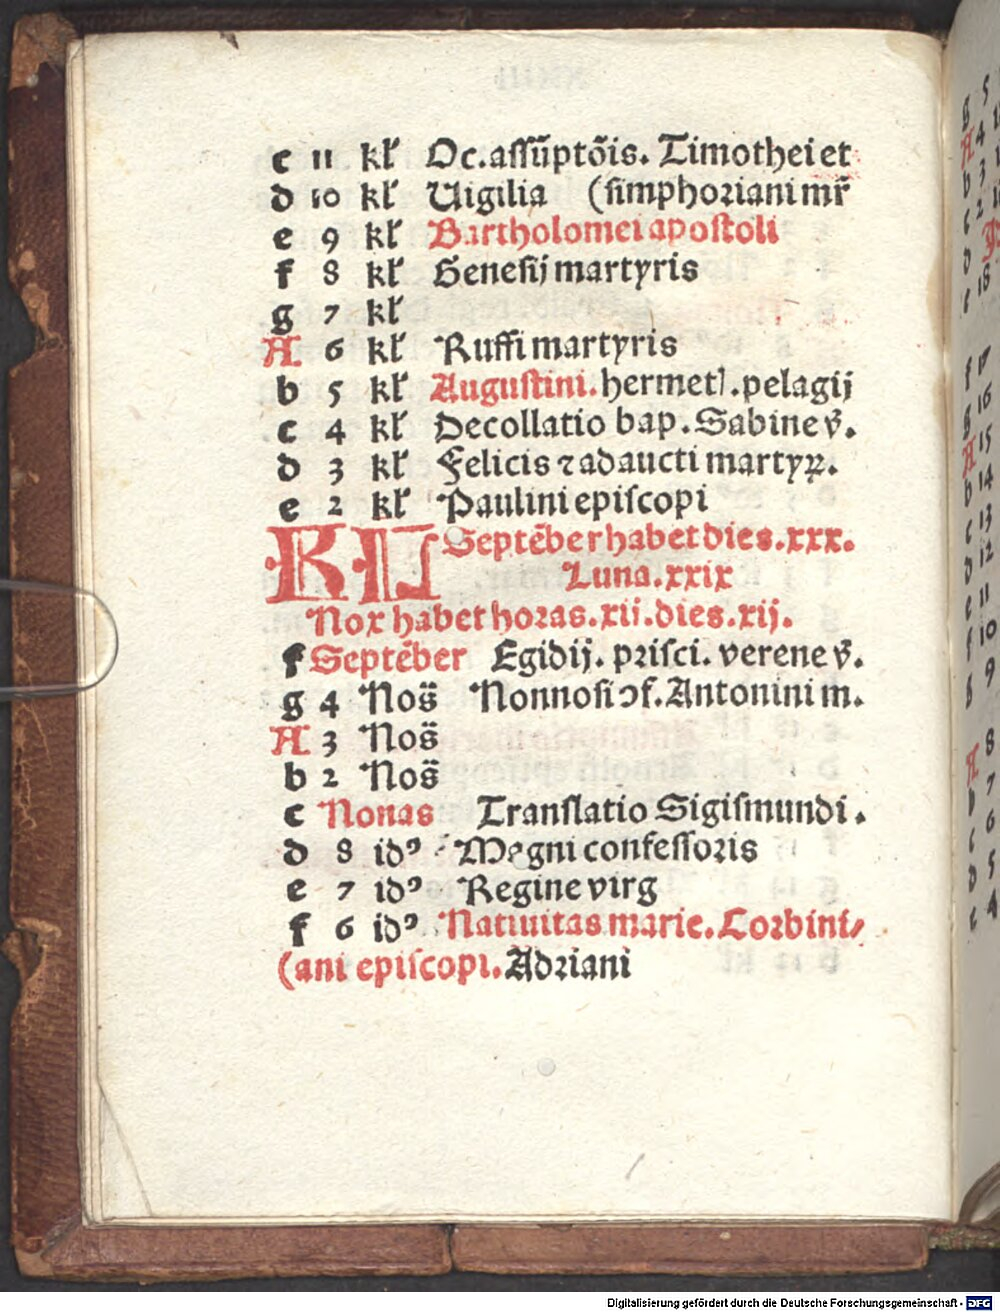 c 11 kl̛ Oc.aſſūptōis. Timothei et
d 10 kl̛ Uigilia (ſimphoriani mr̄
e 9 kl̛ Bartholomei apoſtoli
f 8 kl̛ Geneſij martyris
g 7 kl̛
A 6 kl̛ Ruffi martyris
b 5 kl̛ Auguſtini. hermetꝭ. pelagij
c 4 kl̛ Decollatio bap. Sabine v̄.
d 3 kl̛ Felicis ⁊ adaucti martyꝝ.
e 2 kl̛ Paulini epiſcopi
KL Septēber habet dies .xxx.
Luna .xxix
Nox habet horas .xii. dies .xij.
f Septēber Egidij. priſci. verene v̄.
g 4 Nos̄ Nonnoſi ↄf. Antonini m.
A 3 Nos̄
b 2 Nos̄
c Nonas Tranſlatio Sigiſmundi.
d 8 idꝰ Magni confeſſoris
e 7 idꝰ Regine virg
f 6 idꝰ Natiuitas marie. Corbini⸗
(ani epiſcopi. Adriani
g 5
A 4
b 3
c 2
d
e 18
f 17
g 16
A 15
b 14
c 13
d 12
e 11
f 10
g 9
A 8
b 7
c 6
d 5
e 4
Digitalisierung gefördert durch die Deutsche Forschungsgemeinschaft - DFG